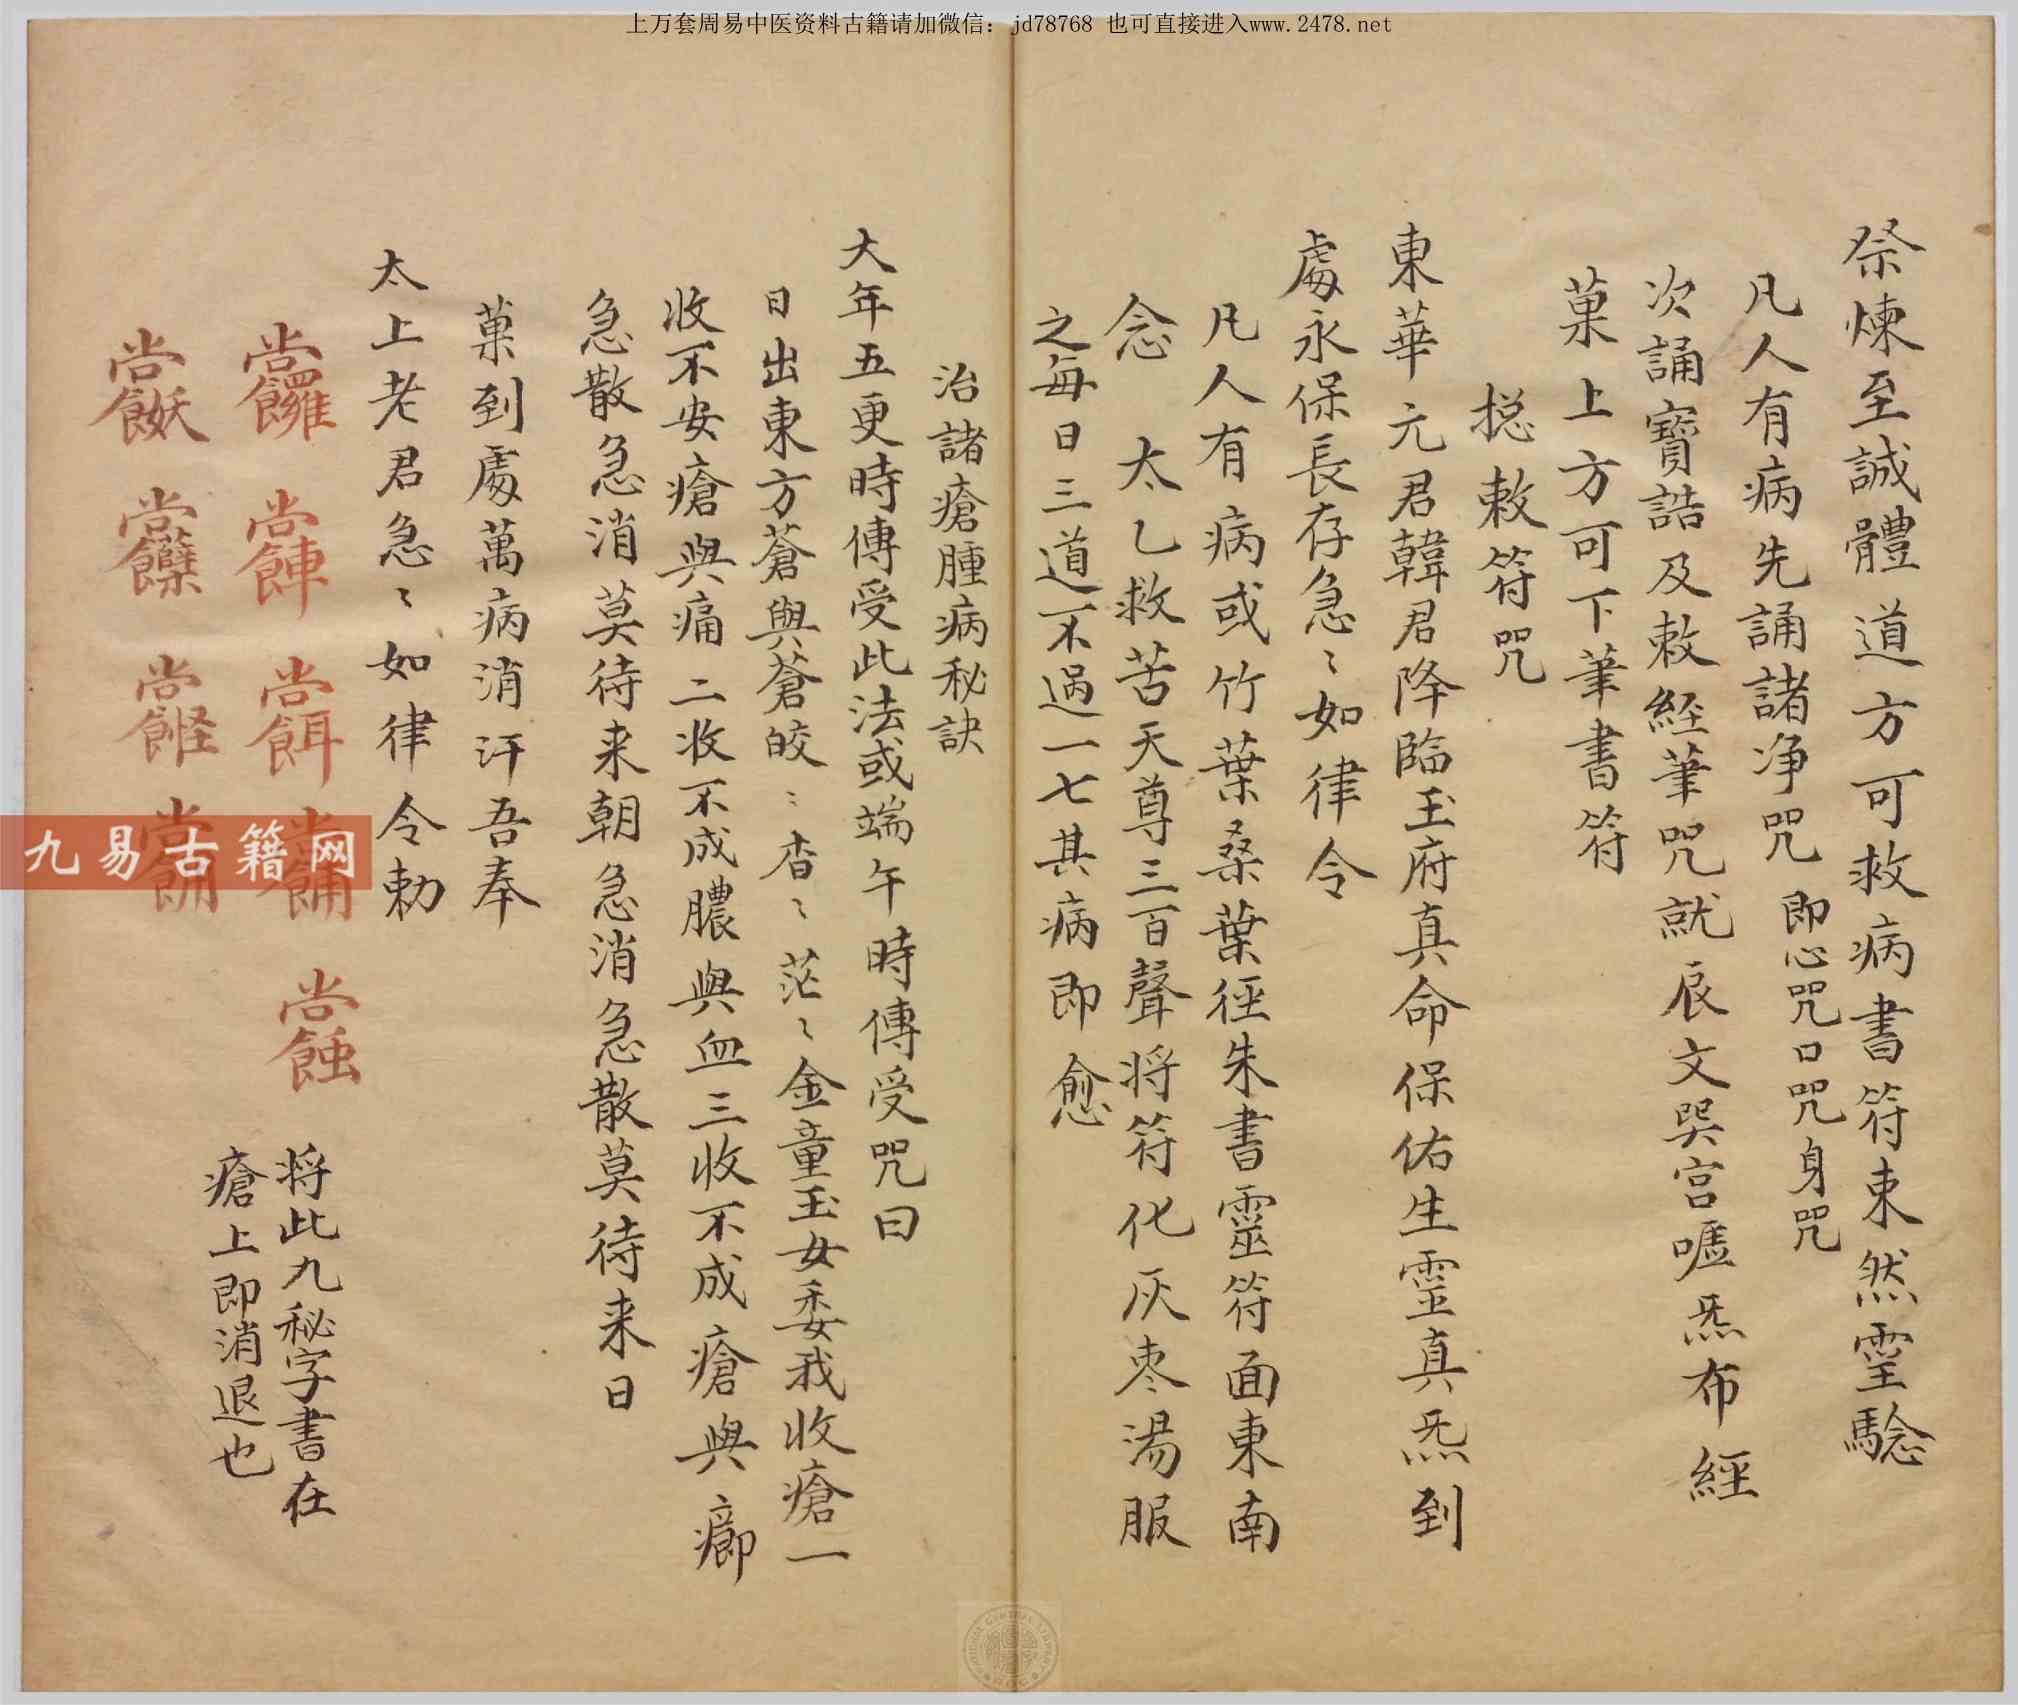 上万套周易中医资料古籍请加微信：jd78768 也可直接进入www.2478.net
祭煉至誠體道方可救病書符束然霊騐
凡人有病先誦諸净咒即心咒口咒身咒
次誦寳誥及敕經筆咒就辰文哭宫嘘炁布經
菓上方可下筆書符
捴敕符咒
東華元君韓君降臨玉府真命保佑生霊真炁到
處永保長存急〻如律令
凡人有病或竹葉桑葉徑朱書靈符面東南
念 太乙救苦天尊三百聲将符化灰枣湯服
之每日三道不過一七其病即愈
治諸瘡腫病秘訣
大年五更時傳受此法或端午時傳受咒曰
日出東方蒼與蒼皎〻杳〻茫〻金童玉女委我收瘡一
收不安瘡與痛二收不成膿與血三收不成瘡與癤
急散急消莫待来朝急消急散莫待来日
菓到處萬病消汗吾奉
太上老君急〻如律令勅
将此九秘字書在
瘡上即消退也
九易古籍网